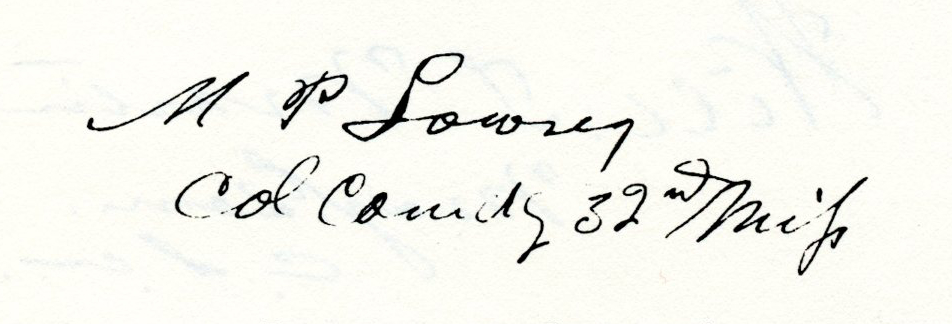 M P Lowrey
Col Comdg 32nd Miss